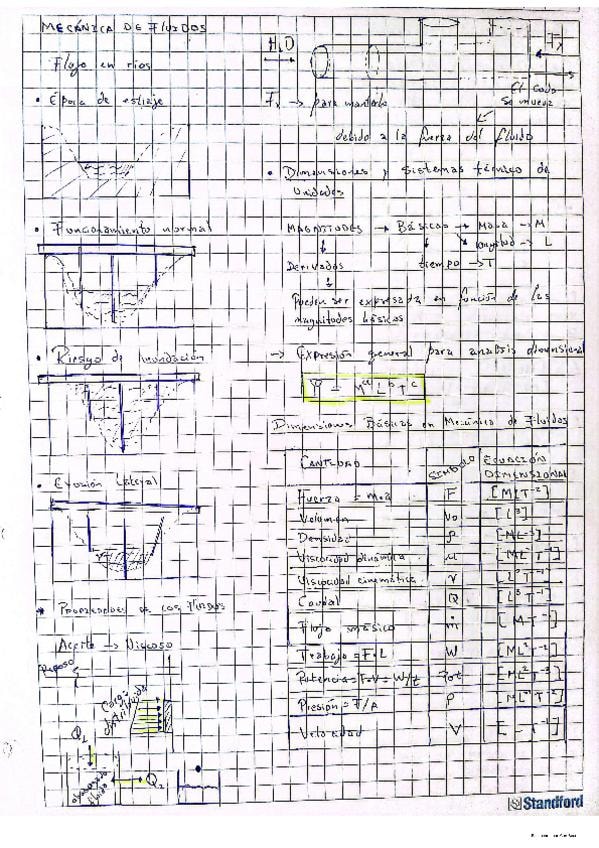 MECÁNICA DE FLUIDOS
Flujo en ríos
• Época de estiaje
• Funcionamiento normal
• Riesgo de Inundación
• Erosión Lateral
* Propiedades de los fluidos
Aceite → Viscoso
Reposo
Carga distribuida
Q1
Q2
H2O
Fx
Fx → para mantado
El codo
se mueva
debido a la fuerza del fluido
• Dimensiones y sistemas técnico de
unidades
MAGNITUDES → Básicas → Masa → M
longitud → L
tiempo → T
Derivados
Pueden ser expresada en función de las
magnitudes básicas
→ Expresión general para analisis dimensional
Ψ = M^a L^b T^c
Dimensiones Básicas en Mecánica de Fluidos
CANTIDAD SÍMBOLO ECUACIÓN DIMENSIONAL
Fuerza = m·a F [MLT^-2]
Volumen Vo [L^3]
Densidad ρ [ML^-3]
Viscosidad dinámica μ
Viscosidad cinemática ν
Caudal Q [L^3 T^-1]
Flujo másico ṁ
Trabajo = F·L W
Potencia = F·V = W/t Pot
Presión = F/A P
Velocidad V
Standford